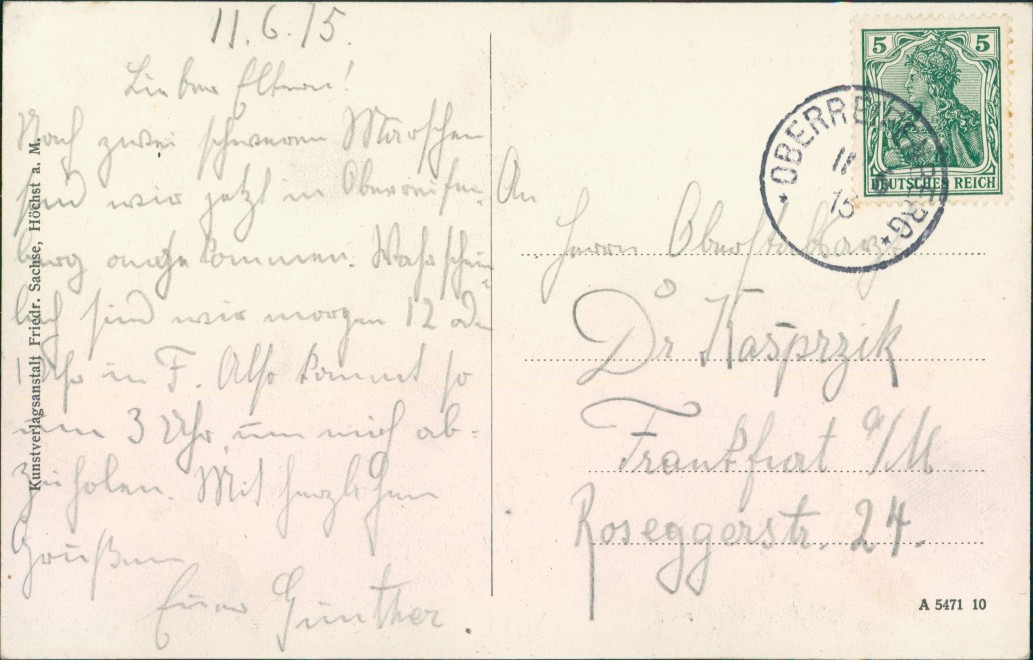 11.6.15.
Lieben Eltern!
Nach zwei schweren Märschen
sind wir jetzt in Oberreifen-
berg angekommen. Wahrschein-
lich sind wir morgen 12 oder
1 Uhr in F. Also kommt so
um 3 Uhr um mich ab=
zuholen. Mit herzlichen
Grüßen
Euer Günther.
Kunstverlagsanstalt Friedr. Sachse, Höchst a. M.
5 5
DEUTSCHES REICH
* OBERREIFENBERG *
11
15
An
Herrn Oberstabsarzt
Dr Kasprzik
Frankfurt a/M
Roseggerstr. 24.
A 5471 10